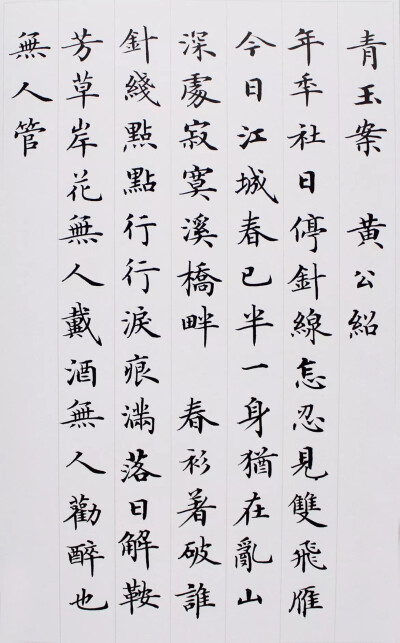 青玉案 黃公紹
年秊社日停針線怎忍見雙飛雁
今日江城春已半一身猶在亂山
深處寂寞溪橋畔 春衫著破誰
針綫點點行行淚痕滿落日解鞍
芳草岸花無人戴酒無人勸醉也
無人管